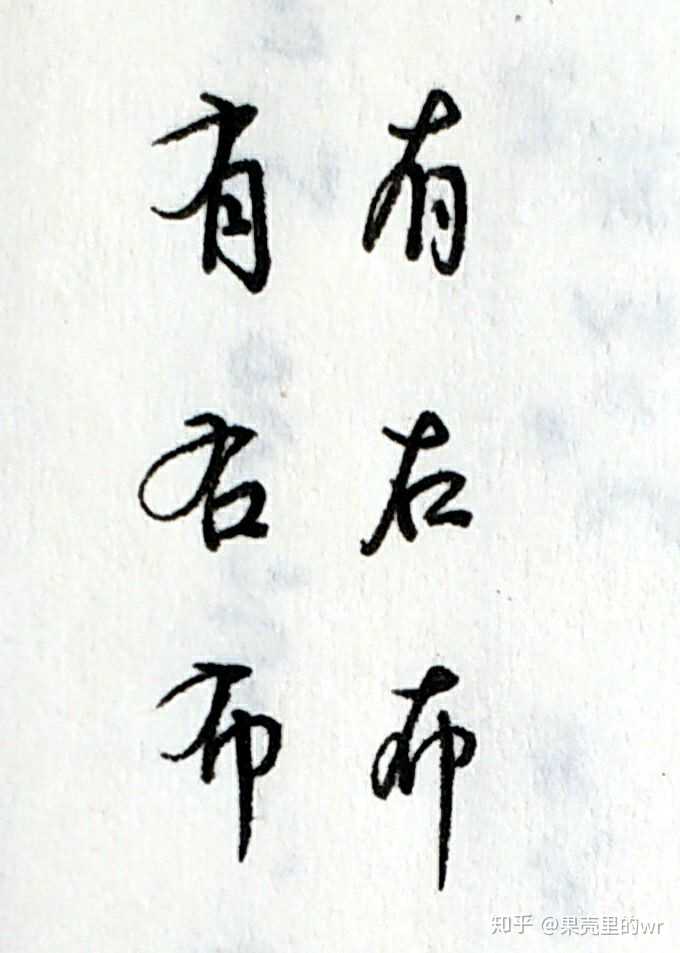 有 有
右 右
布 布
知乎 @果壳里的wr